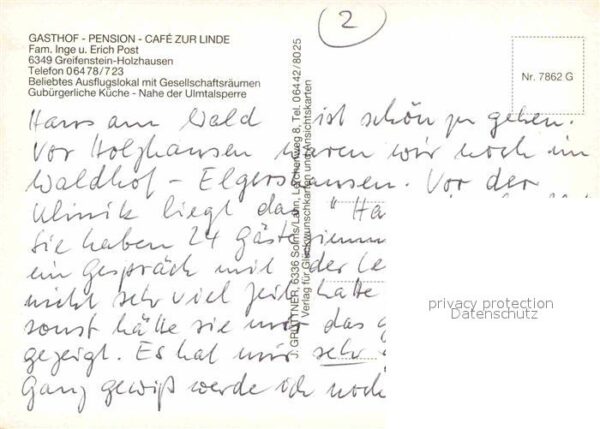 2
GASTHOF - PENSION - CAFÉ ZUR LINDE
Fam. Inge u. Erich Post
6349 Greifenstein-Holzhausen
Telefon 06478/723
Beliebtes Ausflugslokal mit Gesellschaftsräumen
Gubürgerliche Küche - Nahe der Ulmtalsperre
Nr. 7862 G
J. GRÜTTNER, 6336 Solms/Lahn, Lerchenweg 8, Tel. 06442/8025
Verlag für Glückwunschkarten und Ansichtskarten
Haus am Wald ist schön zu gehen.
Vor Holzhausen waren wir noch im
Waldhof - Elgershausen. Vor der
Klinik liegt das "Ha
Sie haben 24 Gästezimm
ein Gespräch mit der Le
nicht sehr viel Zeit hatte
sonst hätte sie mir das g
gezeigt. Es hat mir sehr
Ganz gewiß werde ich noch
privacy protection
Datenschutz